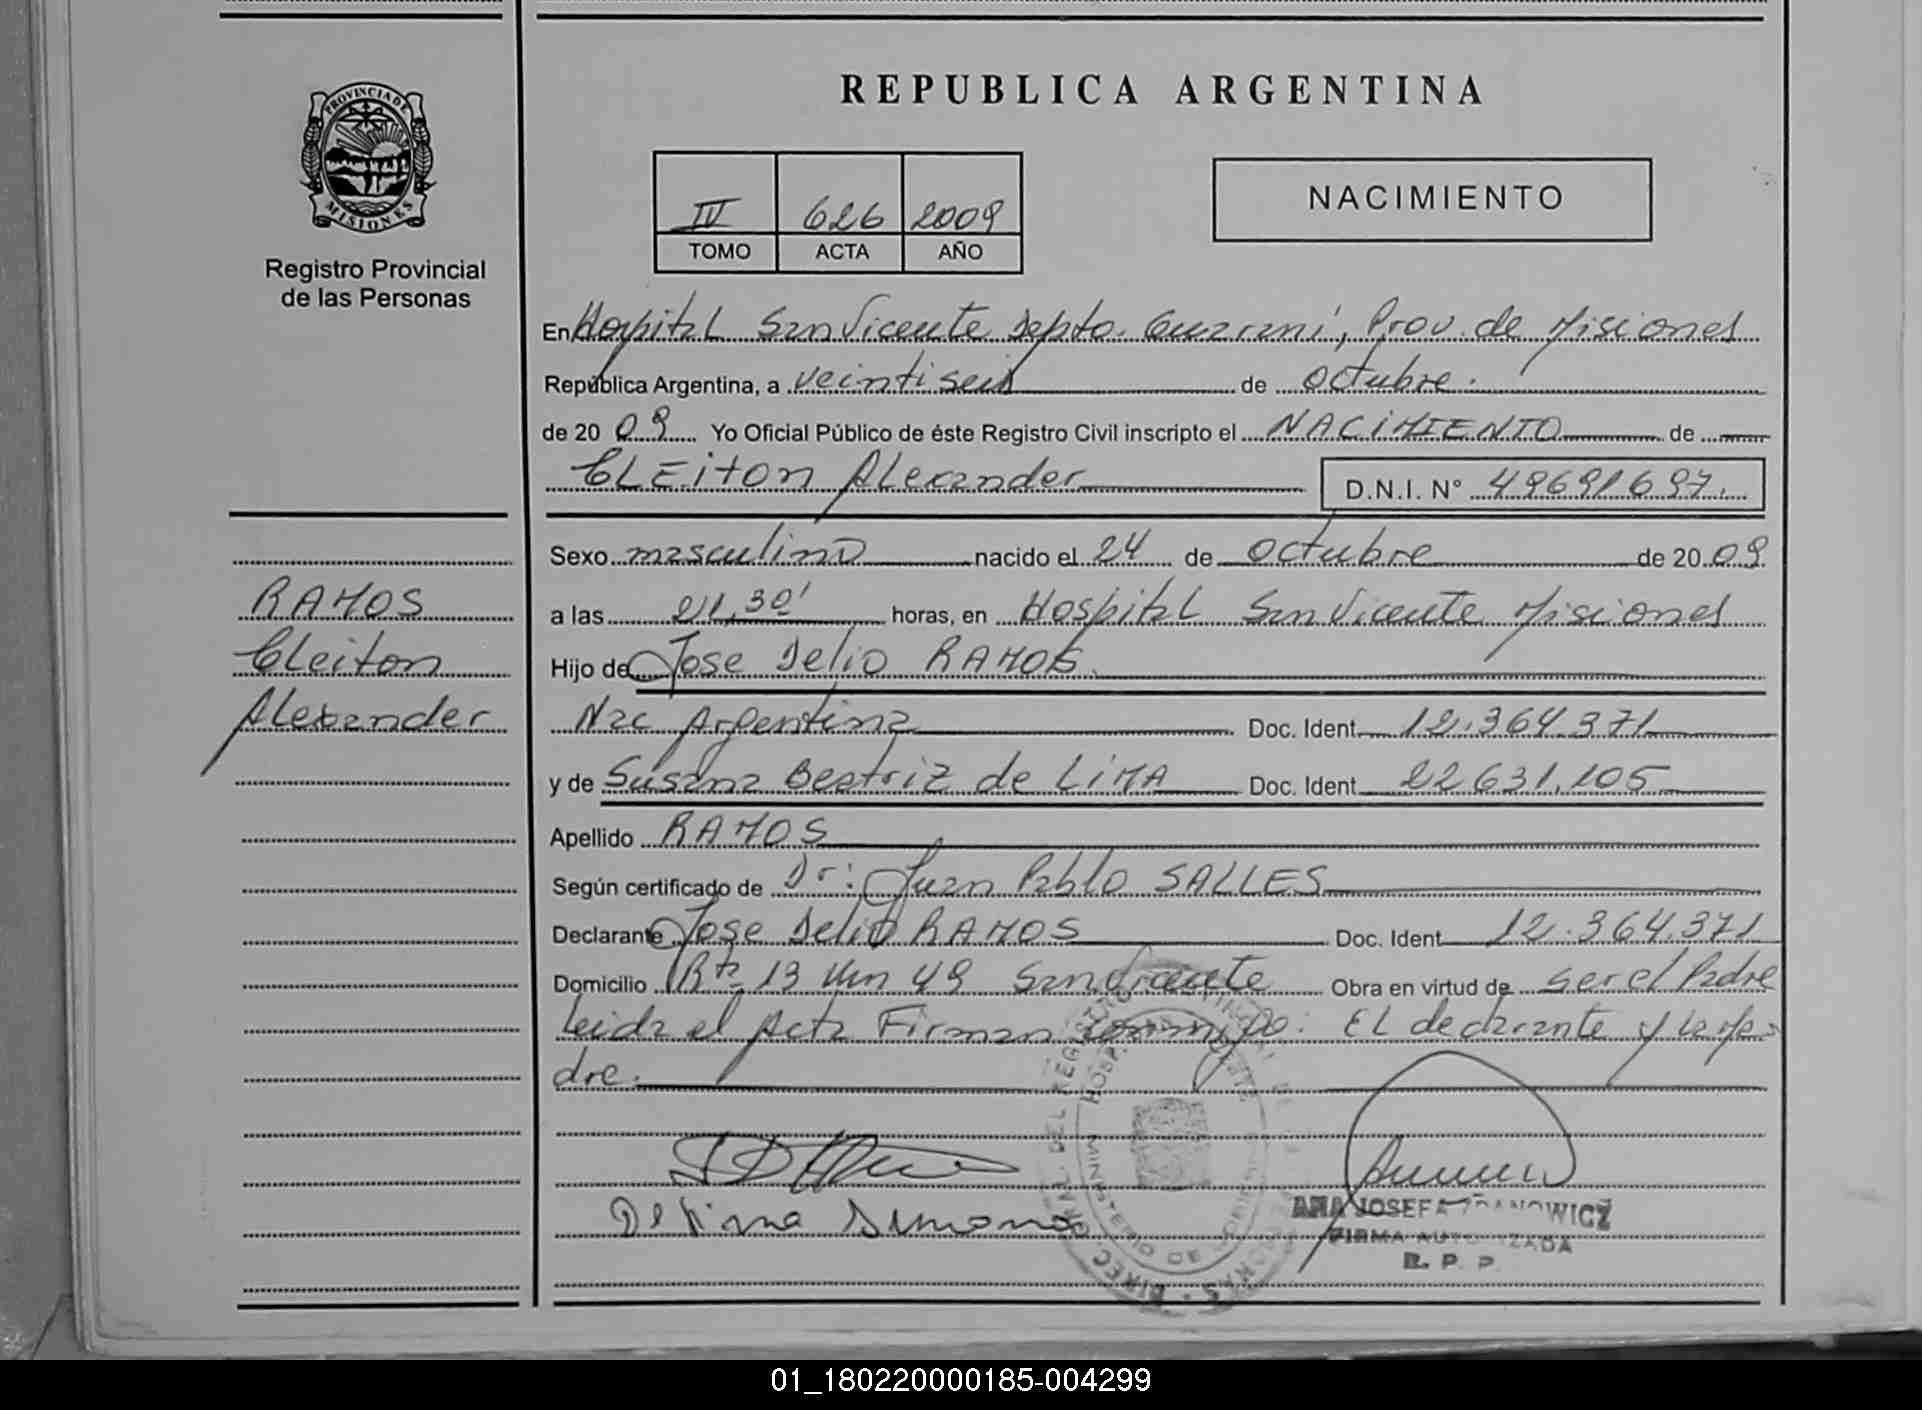 PROVINCIA DE
MISIONES
Registro Provincial
de las Personas
RAMOS
Cleiton
Alexander
REPUBLICA ARGENTINA
IV 626 2009
TOMO ACTA AÑO
NACIMIENTO
En Hospital San Vicente Depto. Guarani, Prov. de Misiones
República Argentina, a veintiseis de octubre.
de 20 09 Yo Oficial Público de éste Registro Civil inscripto el NACIMIENTO de
CLEiton Alexander D.N.I. N° 49691697.
Sexo masculino nacido el 24 de octubre de 20 09
a las 21,30' horas, en Hospital San Vicente Misiones
Hijo de Jose Delio RAMOS
Nac Argentina Doc. Ident. 12.364.371
y de Susana Beatriz de LiMA Doc. Ident. 22631.105
Apellido RAMOS
Según certificado de Dr: Juan Pablo SALLES
Declarante Jose Delio RAMOS Doc. Ident. 12.364.371
Domicilio Rta 13 Km 49 San Vicente Obra en virtud de ser el Padre
leida el Acta Firman conmigo: EL declarante y la Ma
dre.
ANA JOSEFA
FIRMA AUTORIZADA
R. P. P.
01_180220000185-004299